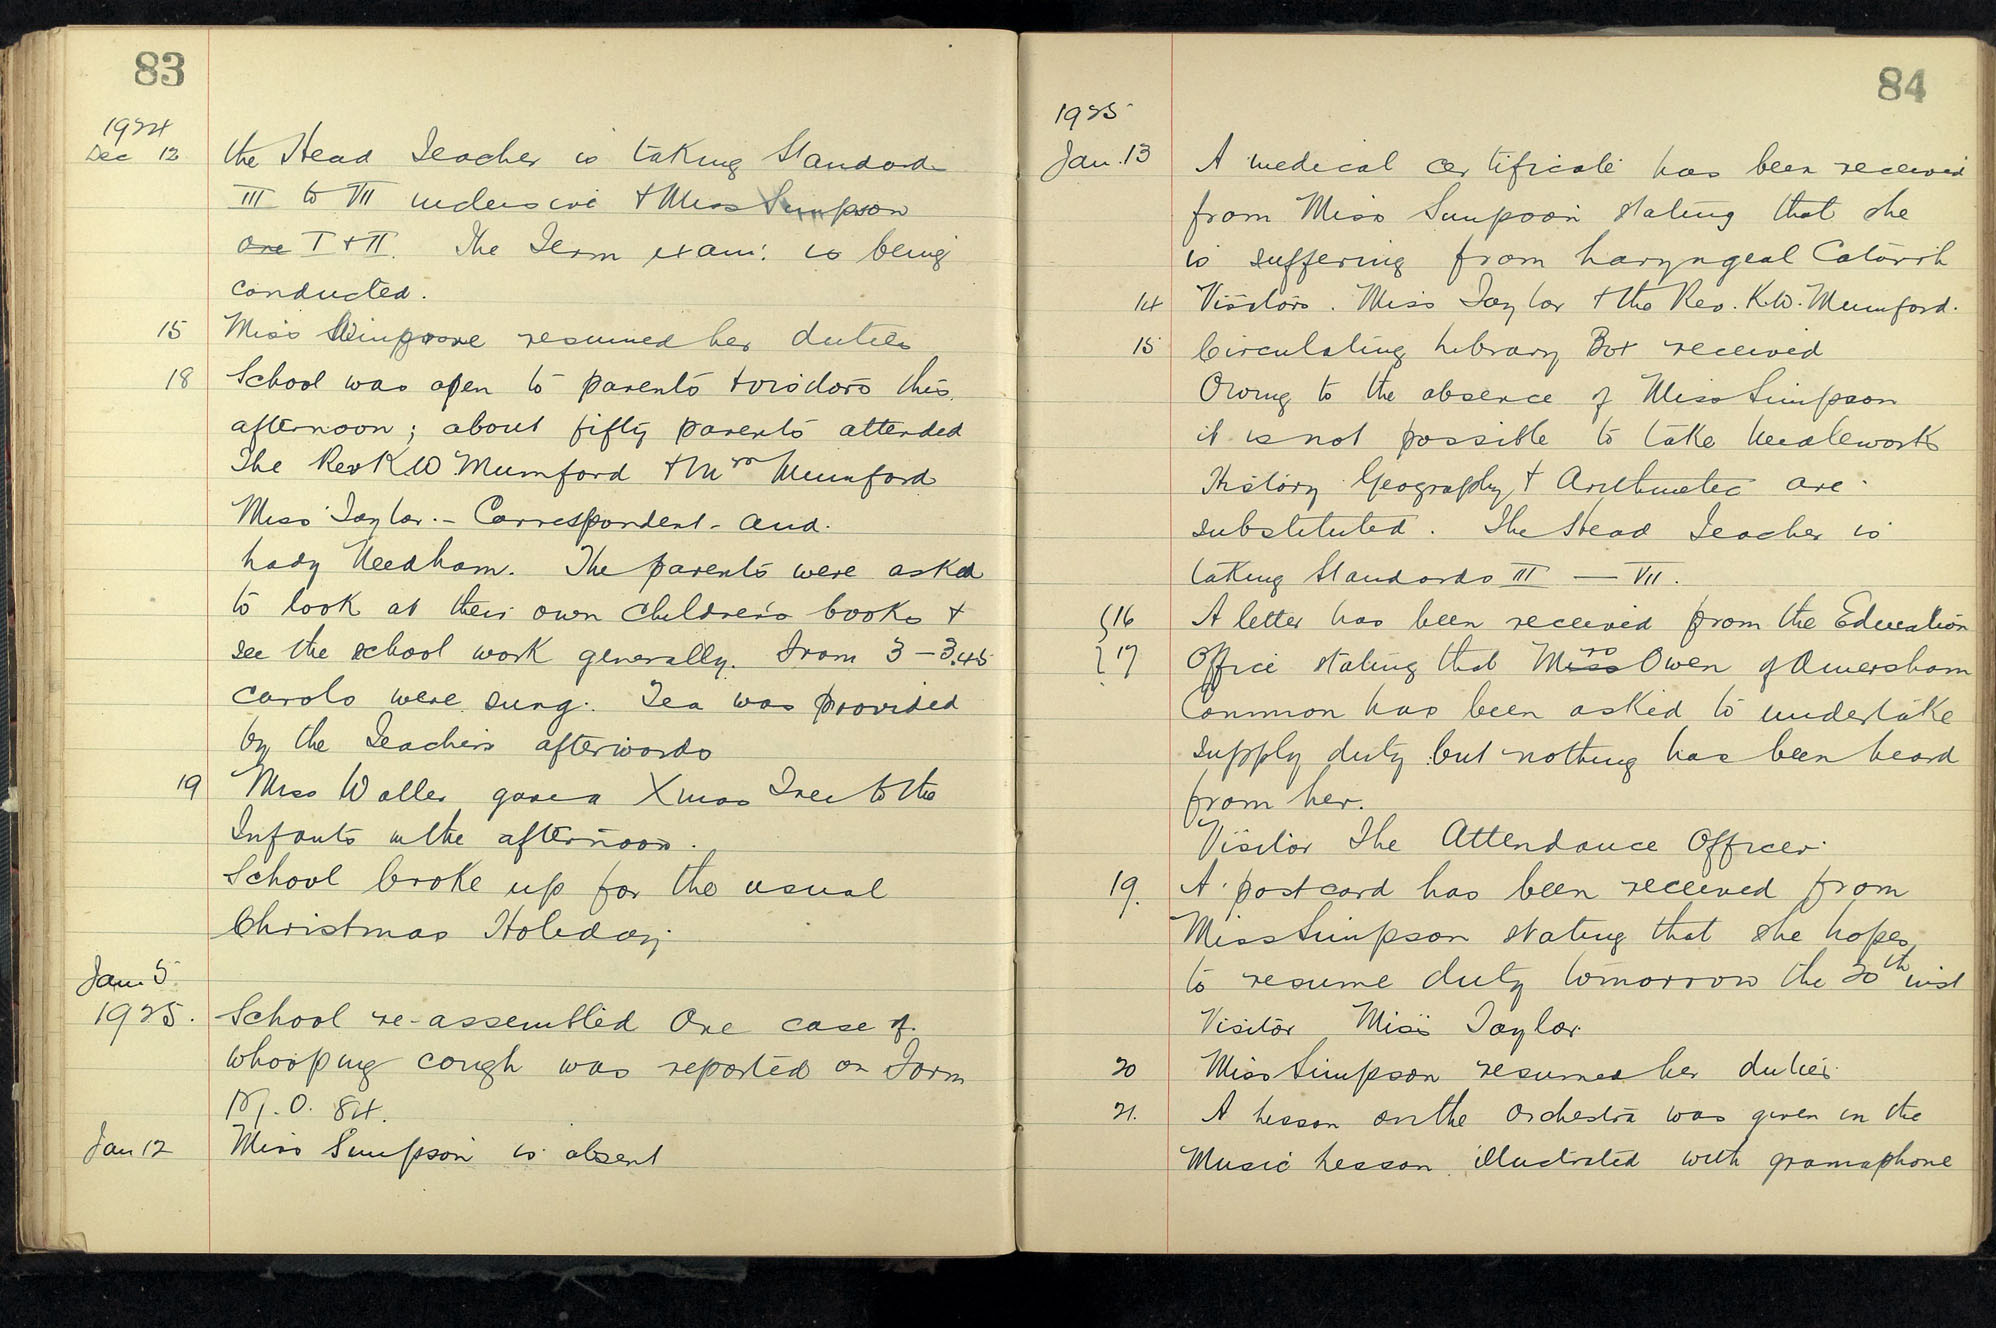 83
1924
Dec 12 the Head Teacher is taking Standards
III to VII inclusive + Miss Simpson
are I + II. The Term exam: is being
conducted.
15 Miss Simpson resumed her duties
18 School was open to parents + visitors this
afternoon; about fifty parents attended
The Rev K W Mumford + Mrs Mumford
Miss Taylor. - Correspondent - and.
Lady Needham. The parents were asked
to look at their own children's books +
see the school work generally. From 3 - 3.45
carols were sung. Tea was provided
by the Teachers afterwards
19 Miss Waller gave a Xmas Tree to the
Infants in the afternoon.
School broke up for the usual
Christmas Holiday
Jan 5
1925. School re-assembled One case of
whooping cough was reported on Form
M.O. 84.
Jan 12 Miss Simpson is absent
84
1925
Jan. 13 A medical certificate has been received
from Miss Simpson stating that she
is suffering from Laryngeal Catarrh
14 Visitors. Miss Taylor + the Rev. K.W. Mumford.
15 Circulating Library Box received
Owing to the absence of Miss Simpson
it is not possible to take Needlework
History Geography + Arithmetic are
substituted. The Head Teacher is
taking Standards III — VII.
16 A letter has been received from the Education
17 Office stating that Miss rs Owen of Amersham
Common has been asked to undertake
supply duty but nothing has been heard
from her.
Visitor The Attendance Officer.
19. A postcard has been received from
Miss Simpson stating that she hopes
to resume duty tomorrow the 20th inst
Visitor Miss Taylor.
20 Miss Simpson resumed her duties.
21. A Lesson on the Orchestra was given in the
Music Lesson illustrated with gramaphone